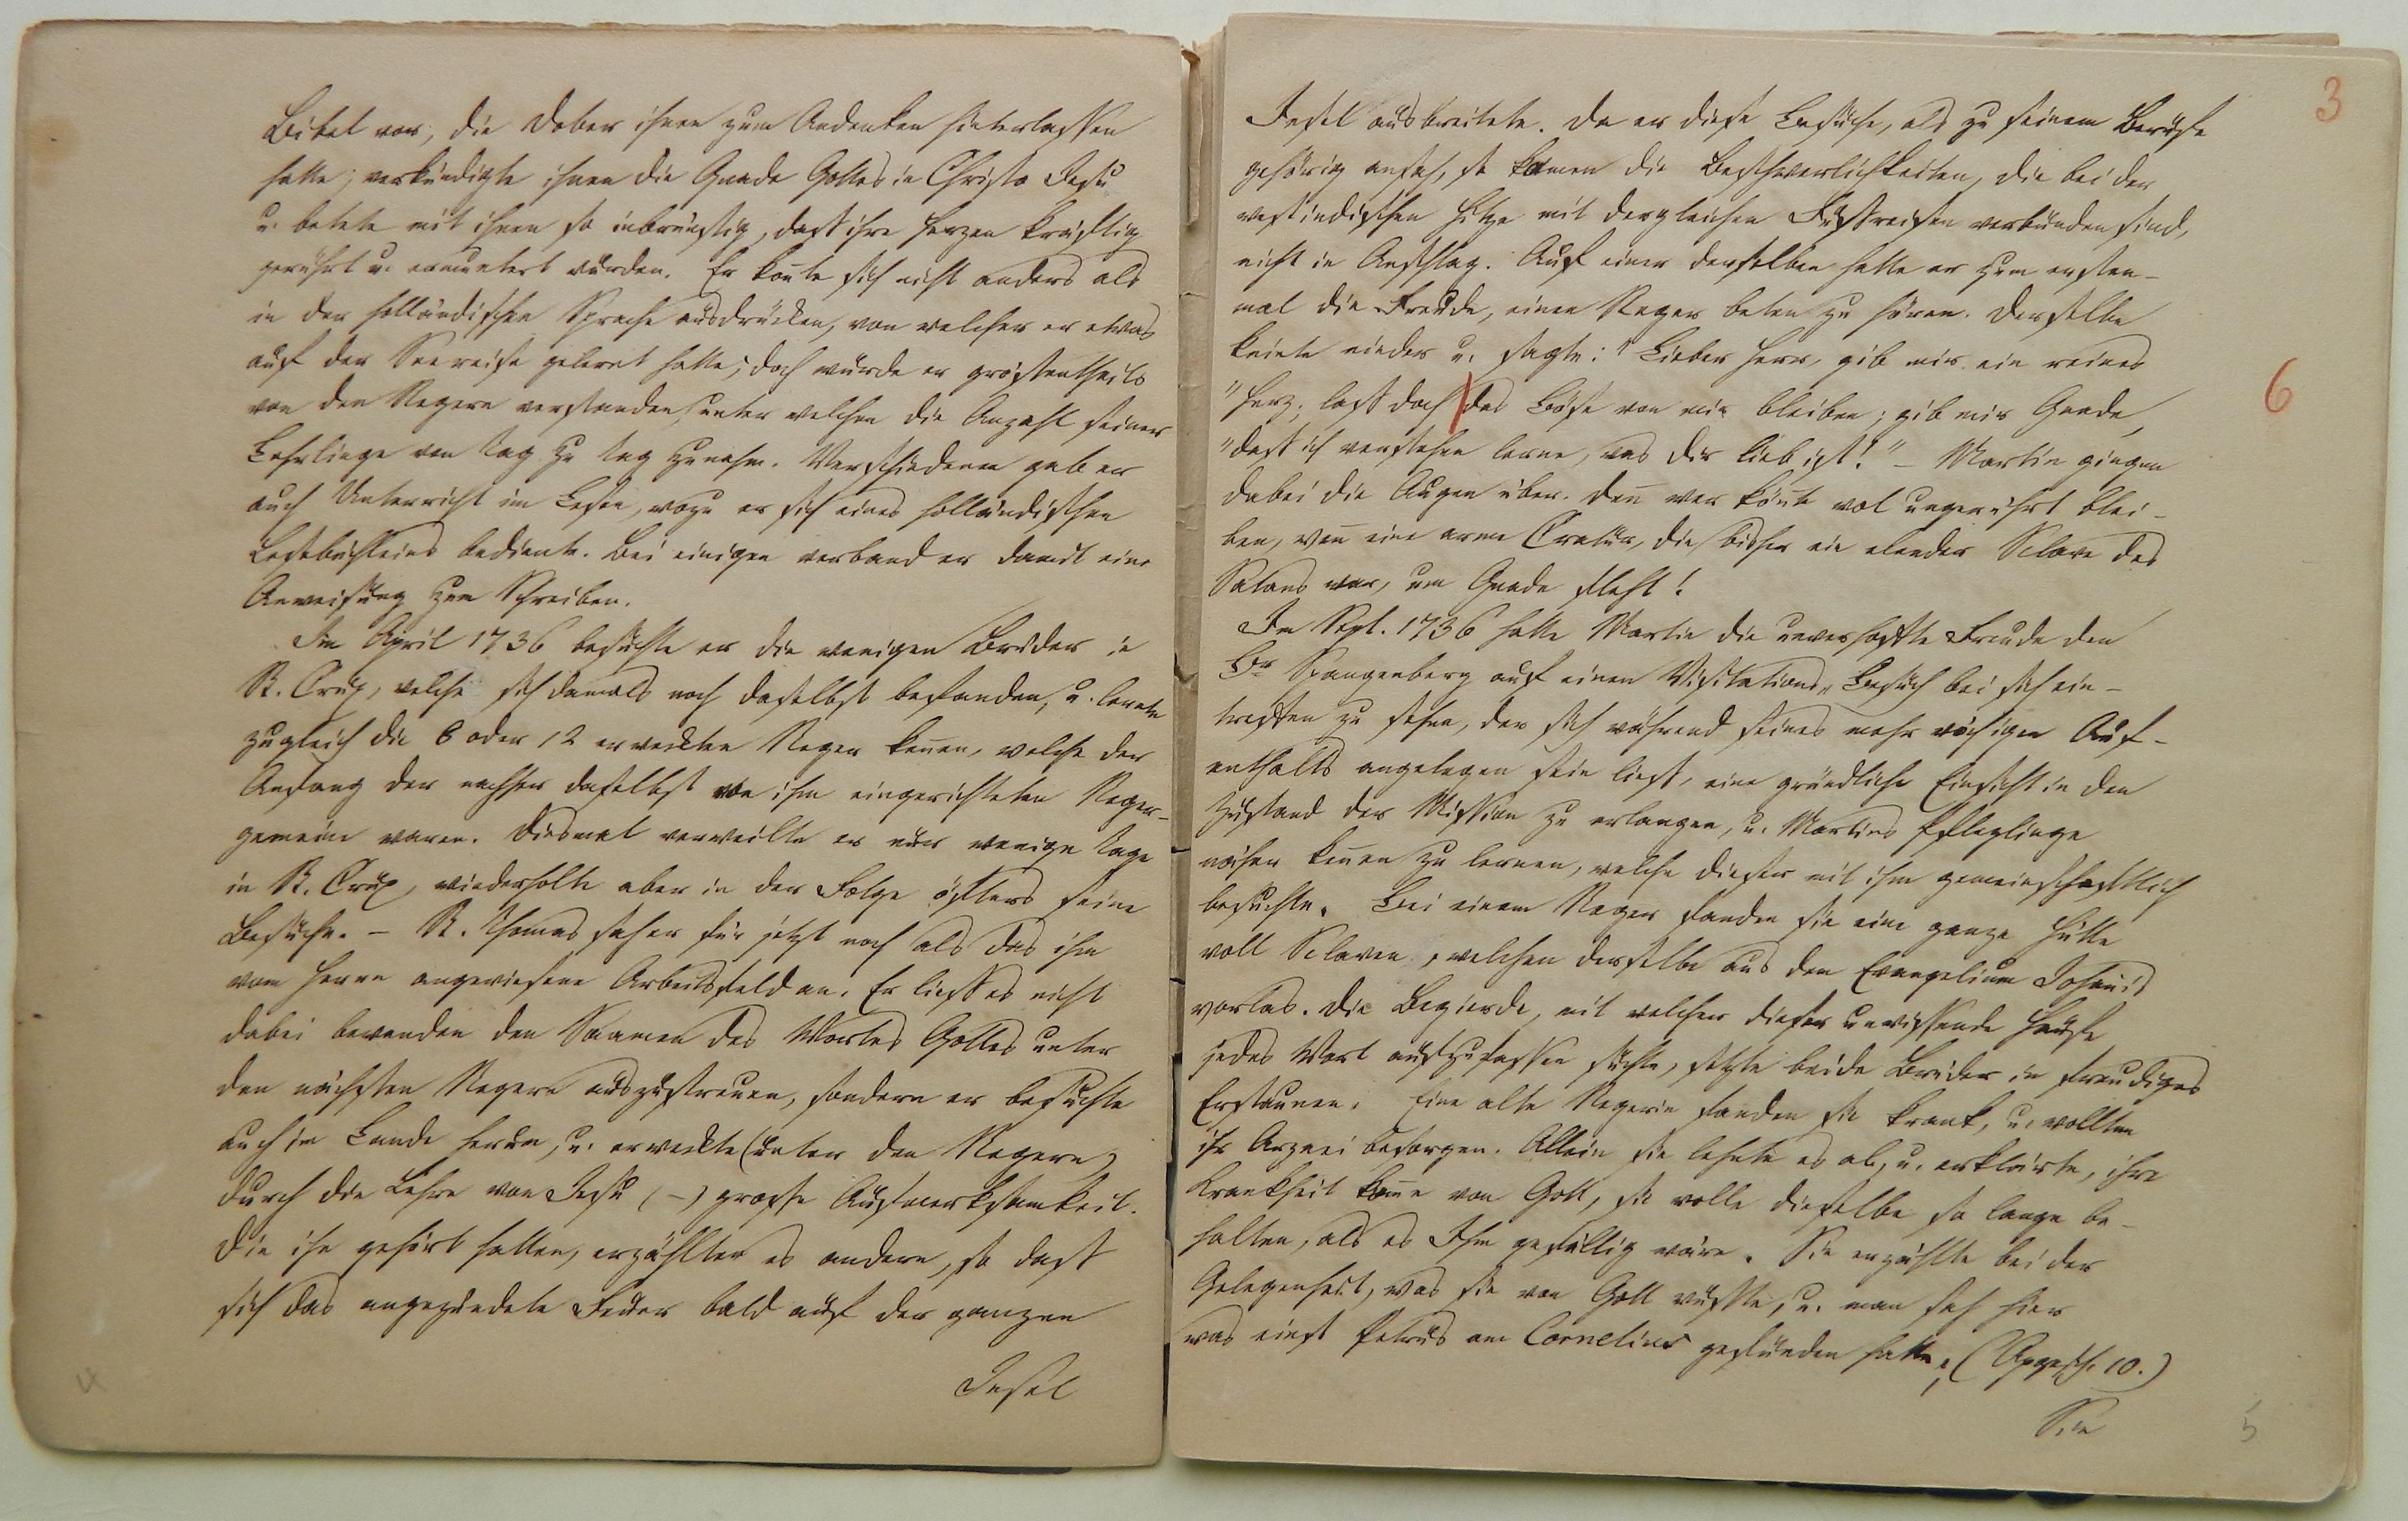 Bibel vor, die Dober ihnen zum Andenken hinterlassen
hatte; verkündigte ihnen die Gnade Gottes in Christo Jesu
u. betete mit ihnen so inbrünstig, dass ihre Herzen kräftig
gerührt u. ermuntert wurden. Er konte sich nicht anders als
in der holländischen Sprache ausdrücken, von welcher er etwas
auf der Seereise gelernt hatte; doch wurde er grösstentheils
von den Negern verstanden, unter welchen die Anzahl seiner
Lehrlinge von Tag zu Tag zunahm. Verschiedenen gab er
auch Unterricht im Lesen, wozu er sich eines holländischen
Lesebüchleins bediente. Bei einigen verband er damit eine
Anweisung zum Schreiben.
Im April 1736 besuchte er die wenigen Brüder in
St. Crux, welche sich damals noch daselbst befanden, u. lernte
zugleich die 8 oder 12 erweckten Neger kennen, welche der
Anfang der nachher daselbst von ihm eingerichteten Neger-
gemeine waren. Diesmal verweilte er nur wenige Tage
in St. Crux, wiederholte aber in der Folge öfters seine
Besuche. – St. Thomas sah er für jetzt noch als das ihm
vom Herrn angewiesene Arbeitsfeld an. Er liess es nicht
dabei bewenden den Saamen des Wortes Gottes unter
den nächsten Negern auszustreuen, sondern er besuchte
auch im Lande herum, u. erweckte (unter den Negern)
durch die Lehre von Jesu (–) grosse Aufmerksamkeit.
Die ihn gehört hatten, erzählten es andern, so dass
sich das angezündete Feuer bald auf der ganzen
Insel
4
3
Insel ausbreitete. Da er diese Besuche, als zu seinem Berufe
gehörig ansah, so kamen die Beschwerlichkeiten, die bei der
westindischen Hitze mit dergleichen Fussreisen verbunden sind,
nicht in Anschlag. Auf einer derselben hatte er zum ersten-
mal die Freude, einen Neger beten zu hören. Derselbe
kniete nieder u. sagte: "Lieber Herr, gib mir ein reines
"Herz; lass doch das Böse von mir bleiben; gib mir Gnade,
6
"dass ich verstehen lerne, was dir lieb ist!" – Martin gingen
dabei die Augen über. Denn wer könte wol ungerührt blei-
ben, wenn eine arme Cretur, die bisher ein elender Sclave des
Satans war, um Gnade fleht!
Im Sept. 1736 hatte Martin die unverhoffte Freude den
Br Spangenberg auf einen Visitations-Besuch bei sich ein-
treffen zu sehen, der sich während seines mehrwöchigen Auf-
enthalts angelegen sein liess, eine gründliche Einsicht in den
Zustand der Mission zu erlangen, u. Martins Pfleglinge
näher kennen zu lernen, welche dieser mit ihm gemeinschaftlich
besuchte. Bei einem Neger fanden sie eine ganze Hütte
voll Sclaven, welchen derselbe aus dem Evangelium Johannis
vorlas. Die Begierde, mit welcher dieser unwissende Haufe
jedes Wort aufzufassen suchte, setzte beide Brüder in freudiges
Erstaunen. Eine alte Negerin fanden sie krank, u. wollten
ihr Arznei besorgen. Allein sie lehnte es ab, u. erklärte, ihre
Krankheit käme von Gott, sie wolle dieselbe so lange be-
halten, als es Ihm gefällig wäre. Sie erzählte bei der
Gelegenheit, was sie von Gott wusste, u. man sah hier
was einst Petrus am Cornelius gefunden hatte; (Apgesch. 10.)
Sie
5